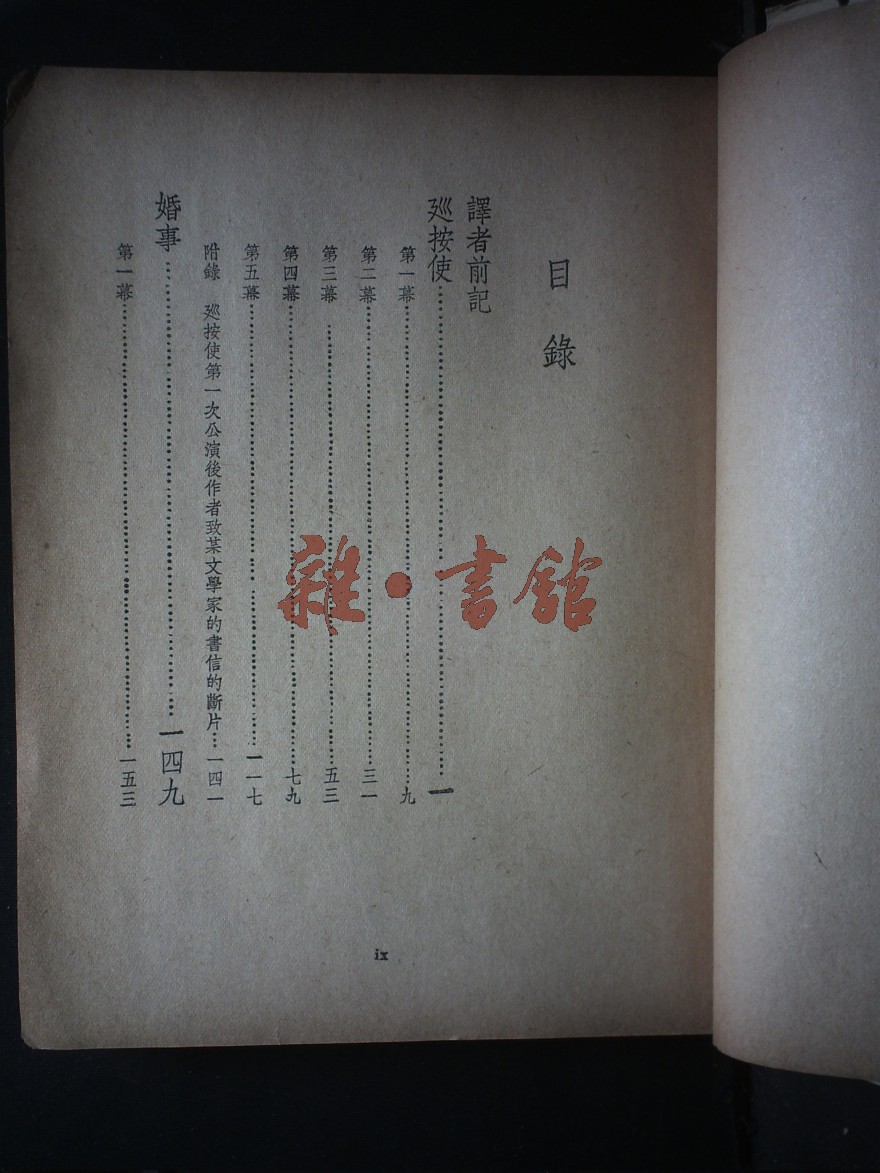 目錄
譯者前記
廵按使……一
第一幕……九
第二幕……三一
第三幕……五三
第四幕……七九
第五幕……一一七
附錄 廵按使第一次公演後作者致某文學家的書信的斷片…一四一
婚事……一四九
第一幕……一五三
ix
雜·書館